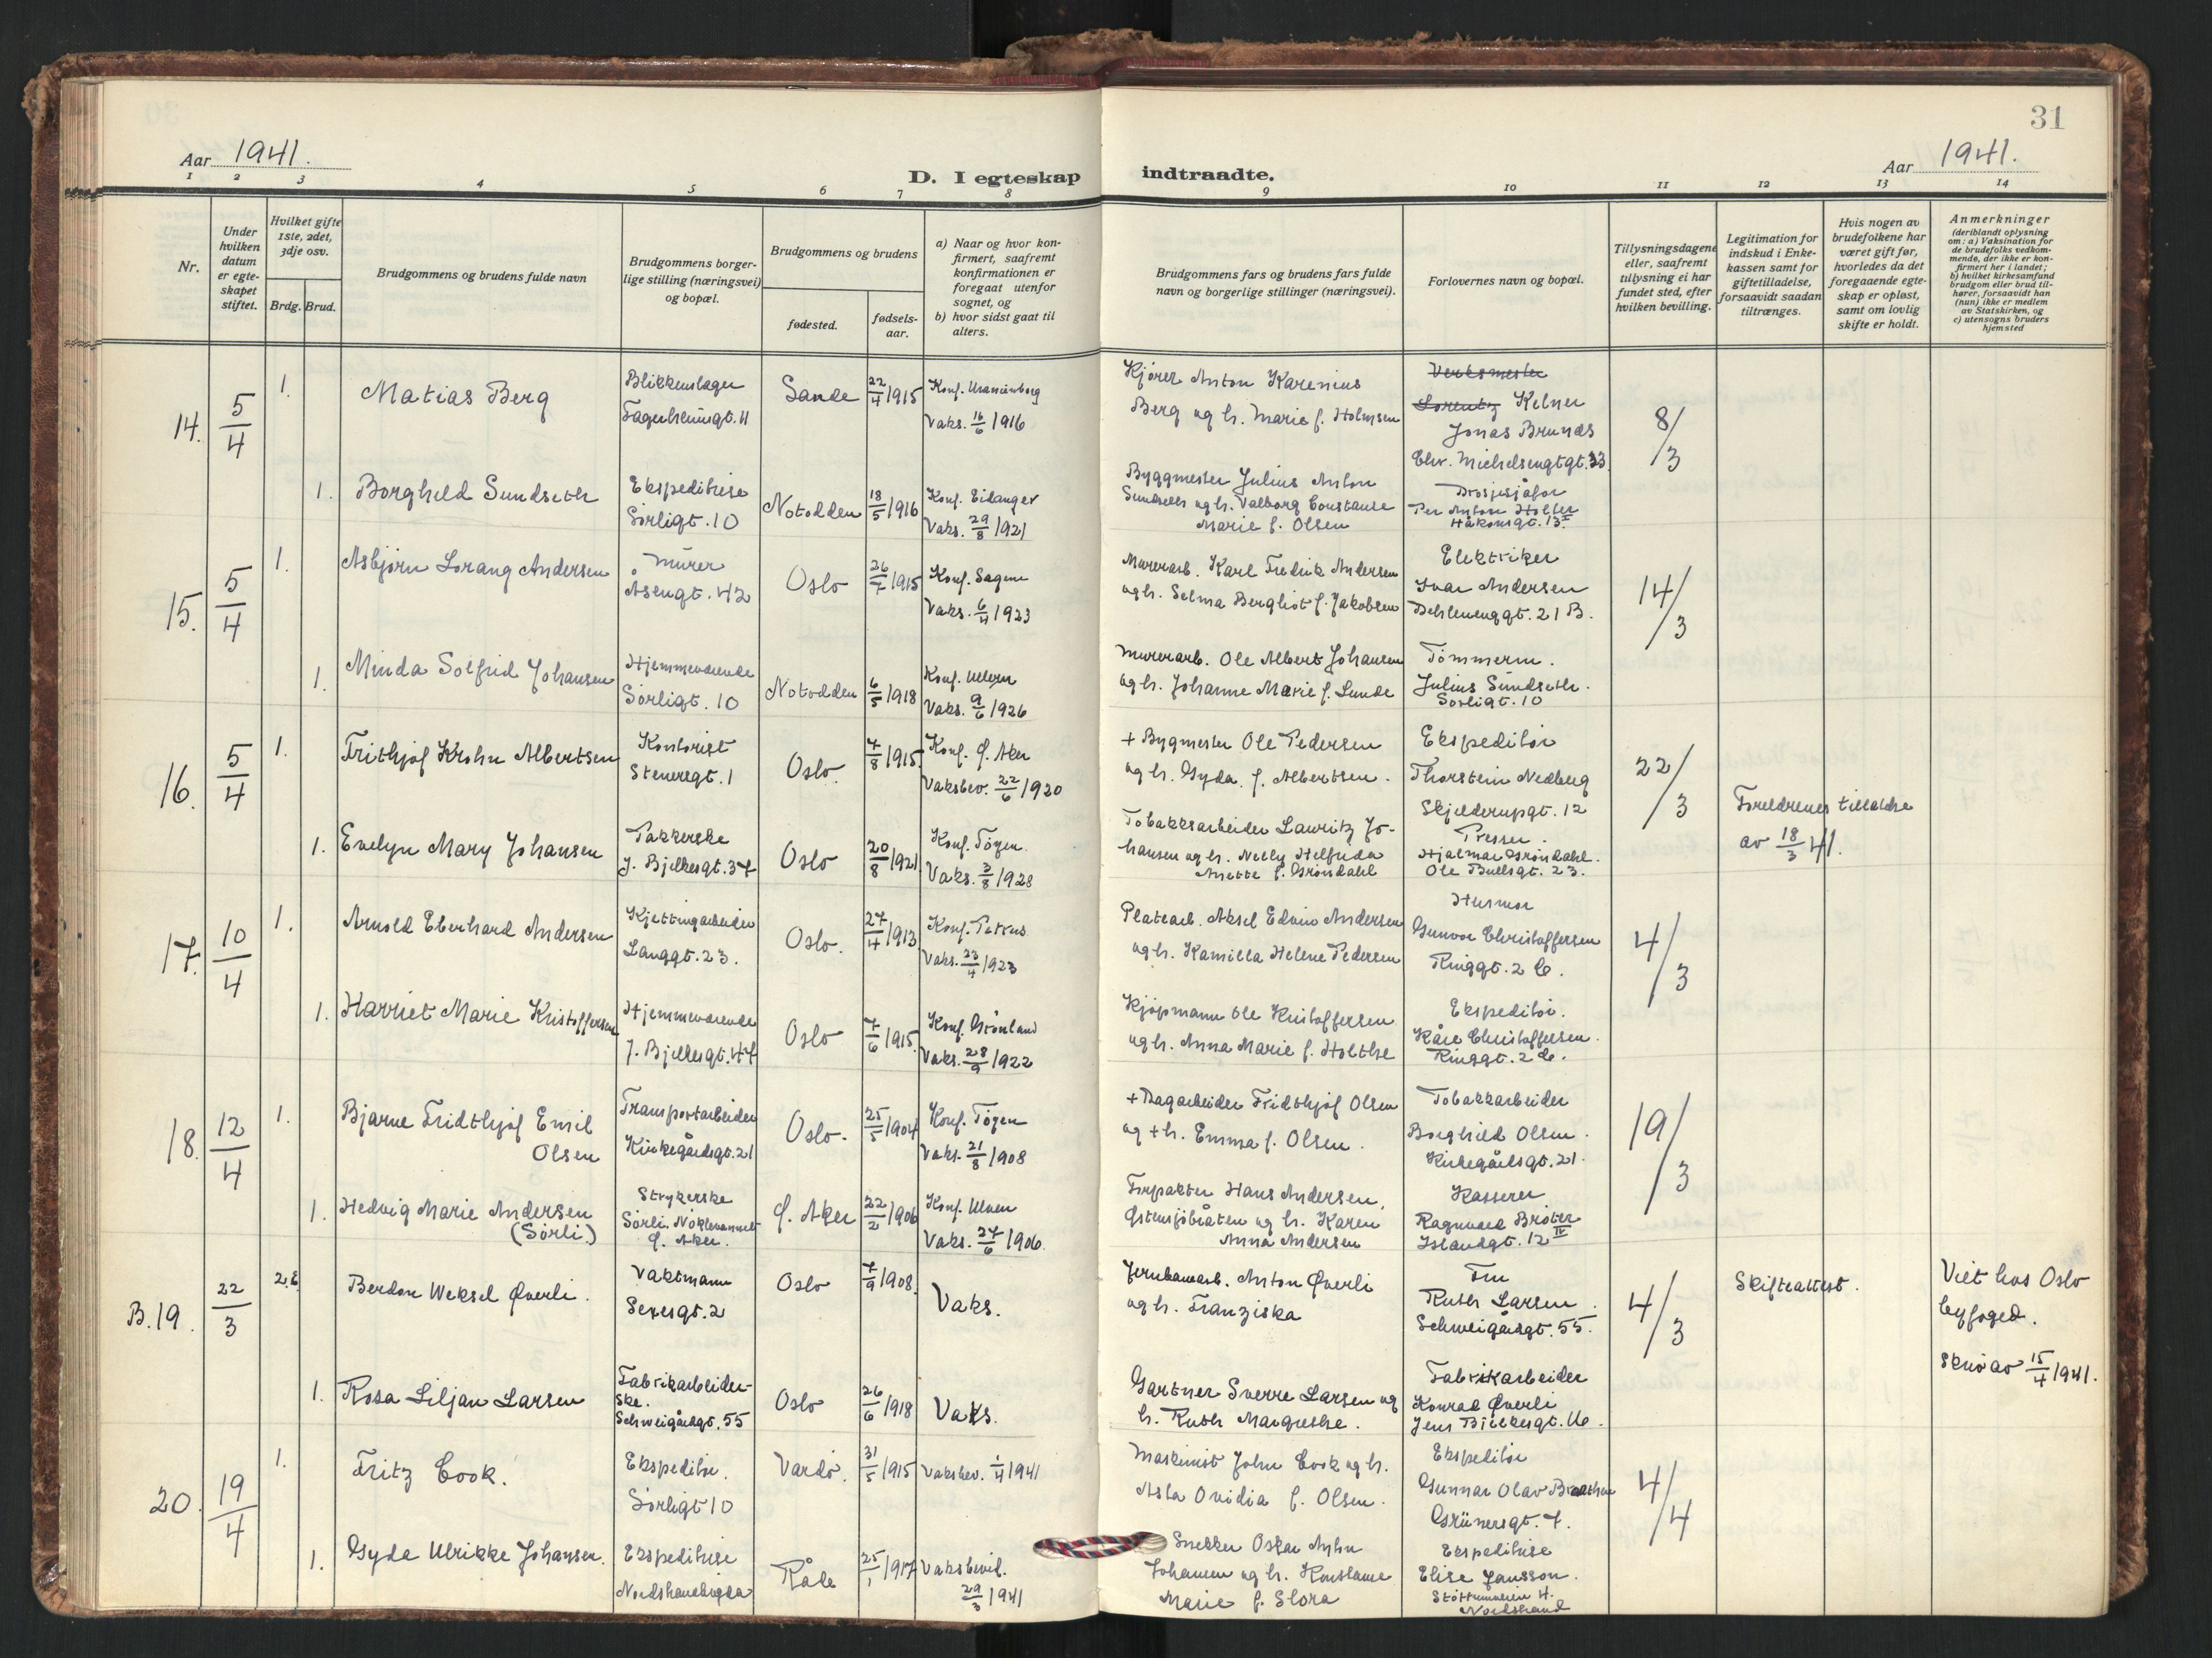 31
Aar 1941.
D. I egteskap indtraadte.
Aar 1941.
1 2 3 4 5 6 7 8 9 10 11 12 13 14
Nr.
Under hvilken datum er egte-skapet stiftet.
Hvilket gifte 1ste, 2det, 3dje osv.
Brdg. Brud.
Brudgommens og brudens fulde navn
Brudgommens borger-lige stilling (næringsvei) og bopæl.
Brudgommens og brudens
fødested.
fødsels-aar.
a) Naar og hvor kon-firmert, saafremt konfirmationen er foregaat utenfor sognet, og
b) hvor sidst gaat til alters.
Brudgommens fars og brudens fars fulde navn og borgerlige stillinger (næringsvei).
Forlovernes navn og bopæl.
Tillysningsdagene eller, saafremt tillysning ei har fundet sted, efter hvilken bevilling.
Legitimation for indskud i Enke-kassen samt for giftetilladelse, forsaavidt saadan tiltrænges.
Hvis nogen av brudefolkene har været gift før, hvorledes da det foregaaende egte-skap er opløst, samt om lovlig skifte er holdt.
Anmerkninger (deriblandt oplysning om: a) Vaksination for de brudefolks vedkom-mende, der ikke er kon-firmert her i landet; b) hvilket kirkesamfund brudgom eller brud til-hører, forsaavidt han (hun) ikke er medlem av Statskirken, og c) utensogns bruders hjemsted
14. 5/4 1. Matias Berg
Blikkenslager
Fagerheimgt. 11
Sande 22/4 1915
Konf. Uranienborg
Vaks. 16/6 1916
Kjører Anton Karenius
Berg og h. Marie f. Holmsen
Verksmester
Lorentz Kelner
Jonas Brunds
Chr. Michelsensgt. 33.
8/3
1. Borghild Sundseth
Ekspeditrise
Sørligt. 10
Notodden 18/5 1916
Konf. Eidanger
Vaks. 29/8 1921
Byggmester Julius Anton
Sundseth og h. Valborg Constanse
Marie f. Olsen
Drosjesjåfør
Per Anton Holter
Håkonsgt. 13
15. 5/4 1. Asbjørn Lorang Andersen
Murer
Åsengt. 42
Oslo 26/7 1915
Konf. Sagene
Vaks. 6/4 1923
Murerarb. Karl Fredrik Andersen
og h. Selma Bergliot f. Jakobsen
Elektriker
Ivar Andersen
Dehlenenggt. 21 B.
14/3
1. Minda Solfrid Johansen
Hjemmeværende
Sørligt. 10
Notodden 6/5 1918
Konf. Ullern
Vaks. 9/6 1926
Murerarb. Ole Albert Johansen
og h. Johanne Marie f. Lunde
Tømmerm.
Julius Sundseth.
Sørligt. 10
16. 5/4 1. Frithjof Krohn Albertsen
Kontorist
Steneregt. 1
Oslo. 7/8 1915
Konf. Ø. Aker
Vaksbev. 22/6 1920
+ Bygmester Ole Pedersen
og h. Gyda f. Albertsen.
Ekspeditør
Thorstein Nedberg
Skjelderupgt. 12
22/3
Foreldrenes tillatelse
av 18/3 41.
1. Evelyn Mary Johansen
Pakkerske
J. Bjelkesgt. 37
Oslo 20/8 1921
Konf. Tøyen.
Vaks. 3/8 1928
Tobakksarbeider Lauritz Jo-
hansen og h. Nelly Helfrida
Anette f. Grøndahl
Presser.
Hjalmar Grøndahl.
Ole Bullsgt. 23.
17. 10/4 1. Arnold Eberhard Andersen
Kjettingarbeider
Langgt. 23.
Oslo. 27/4 1913
Konf. Petrus
Vaks. 23/4 1923
Platearb. Aksel Edvin Andersen
og h. Kamilla Helene Pedersen
Husmor
Gunvor Christoffersen
Ringgt. 2 C.
4/3
1. Harriet Marie Kristoffersen
Hjemmeværende
J. Bjelkesgt. 47
Oslo 7/6 1915
Konf. Grønland
Vaks. 28/9 1922
Kjøpmann Ole Kristoffersen
og h. Anna Marie f. Holthe
Ekspeditør.
Kåre Christoffersen.
Ringgt. 2 C.
18. 12/4 1. Bjarne Fridthjof Emil
Olsen
Transportarbeider
Kirkegårdsgt. 21
Oslo. 25/5 1907
Konf. Tøyen
Vaks. 21/8 1908
+ Dagarbeider Fridthjof Olsen
og + h. Emma f. Olsen.
Tobakkarbeider
Borghild Olsen.
Kirkegårdsgt. 21.
19/3
1. Hedvig Marie Andersen
(Sørli)
Strykerske
Sørli, Nøklevannet
Ø. Aker.
Ø. Aker 22/2 1906
Konf. Ulven
Vaks. 27/6 1906.
Forpakter Hans Andersen,
Østensjøbråten og h. Karen
Anna Andersen
Kasserer
Ragnvald Bråten
Islandgt. 12 IV
B. 19. 22/3 2. E. Berdon Weksel Øverli.
Vaktmann
Sexesgt. 2
Oslo 7/9 1908.
Vaks.
Jernbanearb. Anton Øverli
og h. Franziska
Fru
Ruth Larsen.
Schweigårdsgt. 55.
4/3
Skifteattest.
Viet hos Oslo
byfoged.
Skriv av 15/4 1941.
1. Rosa Liljan Larsen
Fabrikarbeider-
ske.
Schweigårdsgt. 55
Oslo 26/6 1918
Vaks.
Gartner Sverre Larsen og
h. Ruth Margrethe.
Fabrikarbeider
Konrad Øverli
Jens Bjelkesgt. 16.
20. 19/4 1. Fritz Cook.
Ekspeditør.
Sørligt 10
Vardø. 31/5 1915
Vaksbev. 1/4 1941
Maskinist John Cook og h.
Asta Ovidia f. Olsen.
Ekspeditør
Gunnar Olav Braathen
Grünersgt. 7.
4/4
1. Gyda Ulrikke Johansen.
Ekspeditrise
Nordstrandhøgda
Råde 25/1 1917
Vaksbevil.
29/3 1941
Snekker Oskar Anton
Johansen og h. Konstanse
Marie f. Slora
Ekspeditrise
Elise Jansson.
Nordstrand